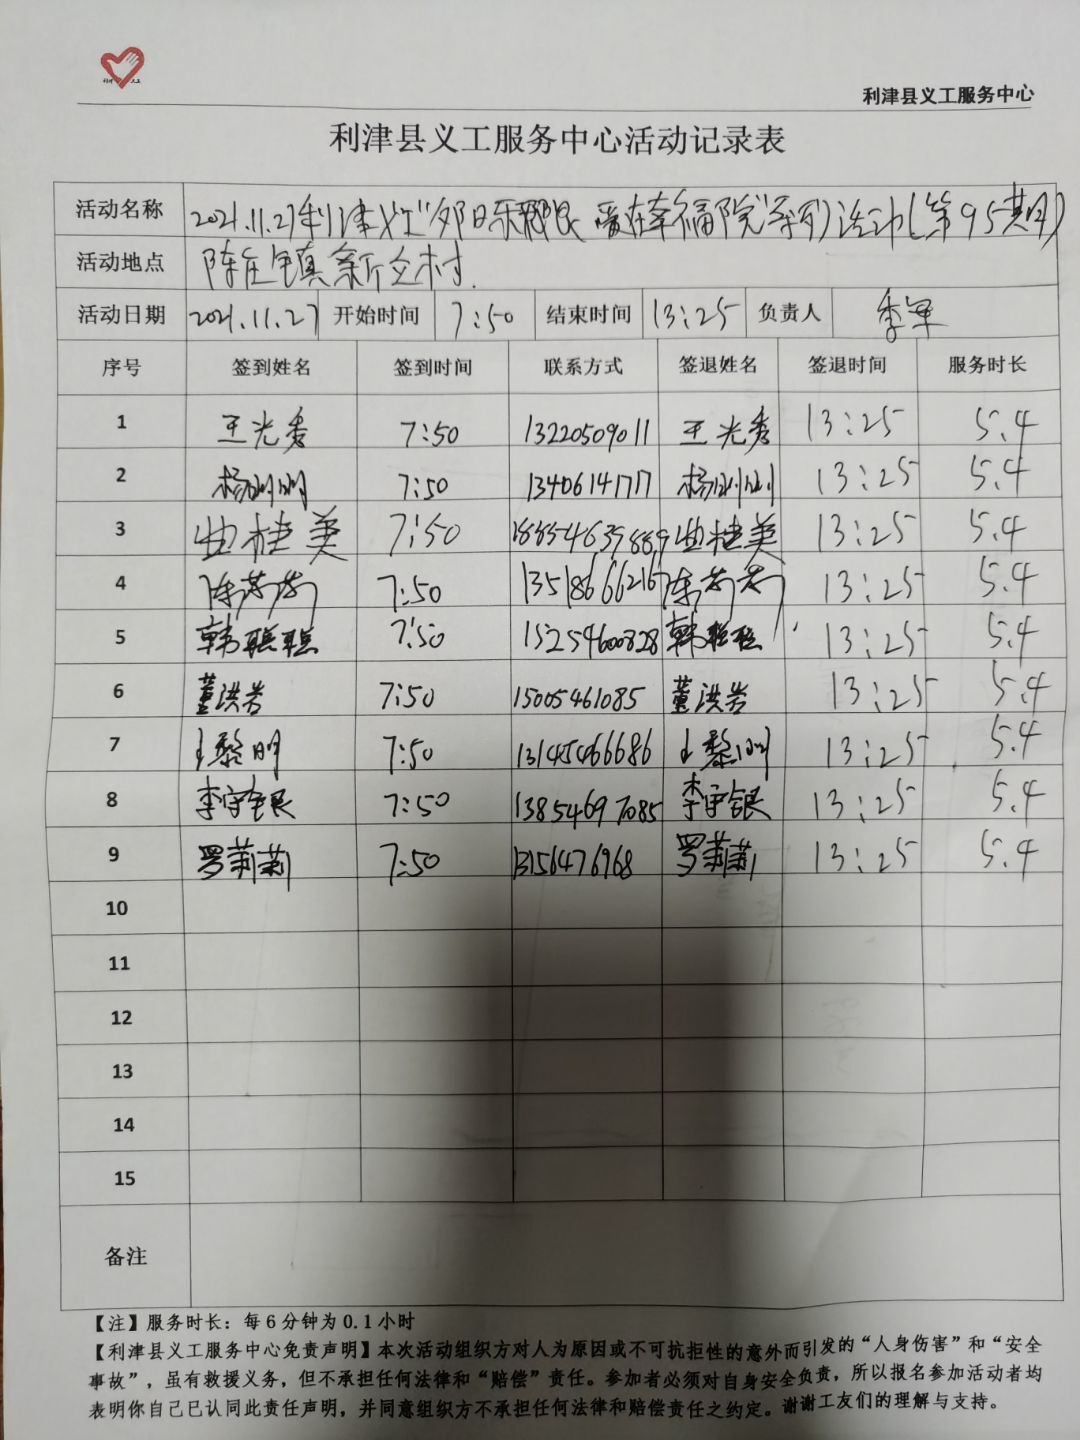 利津县义工服务中心
利津县义工服务中心活动记录表
活动名称 2021.11.27利津义工"夕阳乐 爱在幸福院"系列活动(第95期)
活动地点 陈庄镇新立村.
活动日期 2021.11.27 开始时间 7:50 结束时间 13:25 负责人 季军
序号 签到姓名 签到时间 联系方式 签退姓名 签退时间 服务时长
1 王光香 7:50 13220509011 王光秀 13:25 5.4
2 杨 7:50 13406141717 杨 13:25 5.4
3 曲桂美 7:50 18854639889 曲桂美 13:25 5.4
4 陈芳芳 7:50 13518666216 陈芳芳 13:25 5.4
5 韩聪聪 7:50 15254600828 韩聪聪 13:25 5.4
6 董洪芳 7:50 15005461085 董洪芳 13:25 5.4
7 王黎明 7:50 13145466686 王黎明 13:25 5.4
8 李守银 7:50 13854697085 李守银 13:25 5.4
9 罗莉莉 7:50 13156476968 罗莉莉 13:25 5.4
10
11
12
13
14
15
备注
【注】服务时长：每6分钟为0.1小时
【利津县义工服务中心免责声明】本次活动组织方对人为原因或不可抗拒性的意外而引发的“人身伤害”和“安全
事故”，虽有救援义务，但不承担任何法律和“赔偿”责任。参加者必须对自身安全负责，所以报名参加活动者均
表明你自己已认同此责任声明，并同意组织方不承担任何法律和赔偿责任之约定。谢谢工友们的理解与支持。